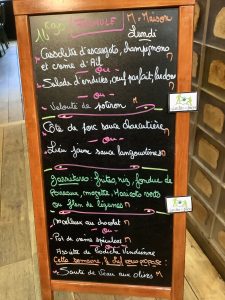 FORMULE M = Maison
Lundi
Cassolettes d'escargots, champignons
et crème d'Ail
- ou -
Salade d'endives, œuf parfait, lardons
- ou -
Velouté de potiron M
Côte de porc sauce charcutière
- ou -
Lieu jaune sauce langoustines M
Garnitures: frites, riz, fondue de
poireaux, mogette, Haricots verts
ou flan de légumes M
Moelleux au chocolat M
- ou -
Pot de crème spéculoos M
Assiette de Vendéenne
Cette semaine, le chef vous propose:
Sauté de Veau aux olives M